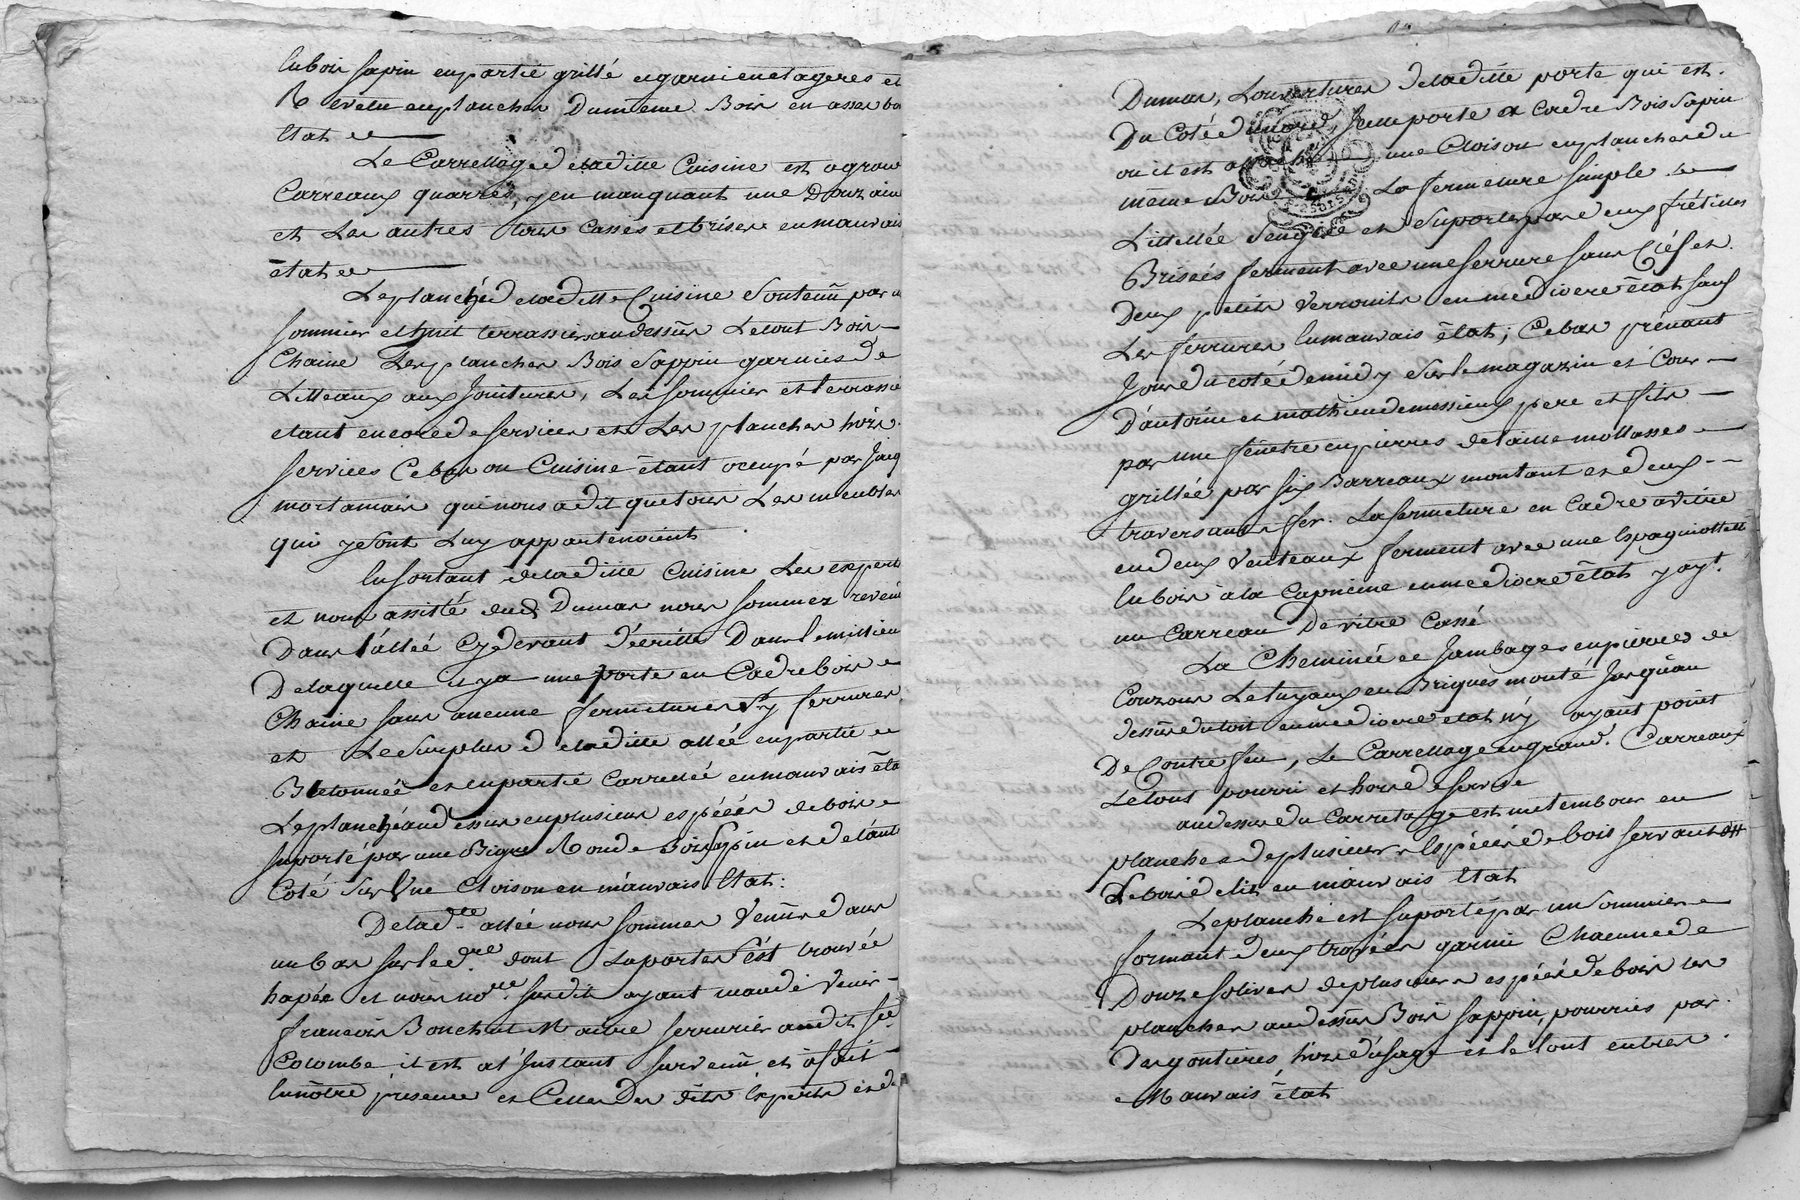 En bois sapin en partie grillé et garni en etageres et
Revetu en planches Du même Bois en asses bo
Etat
Le Carrellage de laditte Cuisine est a grand
Carreaux quarrés, y en manquant une Douzaine
et Les autres tous cassés et brisés en mauvais
état
Le planché de laditte Cuisine Soutenu par u
sommier et huit terrassiers au dessus Le tout Bois
Chaine Les planches Bois Sappin garnies de
Litteaux aux Jointures, Les sommier et terrassie
etant encore de services et Les planches hors
services Ce bas ou Cuisine étant ocupé par Jacq
mortamais qui nous a dit que tous Les meubles
qui y sont Luy appartenoient
En sortant de laditte Cuisine Les experts
et nous assisté dud Dumas nous sommes revenu
Dans l'allée cy devant décritte Dans le millieu
De laquelle il y a une porte en Cadre bois
Chaine sans aucune fermetures ny ferrures
et Le Surplus de laditte allée en partie
Bletonnée et en partie Carrellée en mauvais éta
Le planché au dessus en plusieurs espéces de bois
suporté par une Bigue Ronde Bois Sapin et de l'autr
Coté Sur Une Cloison en mauvais Etat:
De lad.te allée nous sommes venus dans
un bas sur le d.re dont La porte s'est trouvée
hapée et nous no.re susdit ayant mandé venir
francois Bouchut Maitre serrurier audit Ste
Colombe, il est a l'Instant survenu et a fait
En notre présence et Celle Des dits Experts et de
Dumas, L'ouvertures de laditte porte qui est
Du Coté du nord, Icelle porte et Cadre Bois Sapin
ou il est attaché une Cloison en planches du
même Bois La fermeture simple
Littellée Sengoée et Suportes par deux frétilles
Brisées ferment avec une serrure sans Clef et
Deux petits verrouils en médiocre état sauf
Les ferrures En mauvais état; Ce bas prénant
Jour du coté de midy Sur le magazin et Cour
D'antoine et mathieu demessieux pere et fils
par une fénêtre en pierres de taille mollasses
grillée par six Barreaux montant et deux
traversants fer. La fermeture en Cadre a vitre
en deux Venteaux ferment avec une Espagniollette
En bois à la Capucine en médiocre état y ayt.
un Carreau De vitre Cassé
La Cheminée Jambages en pierres de
Couzons Le tuyaux en Briques monté Jusqu'au
dessus du toit en médiocre état n'y ayant point
De Contre feu, Le Carrellage en grand. Carreaux
Le tout pourri et hors de service
au dessus du Carrelage est un tembour en
planches de plusieurs Espéces de bois servant
de bois de lit en mauvais Etat
Le planché est suporté par un Sommier
formant deux travées garnie Chacune de
Douze solives de plusieurs espéces de bois Les
planches au dessus Bois sappin, pourries par
Des goutieres, hors d'usage et le tout en tres
Mauvais état